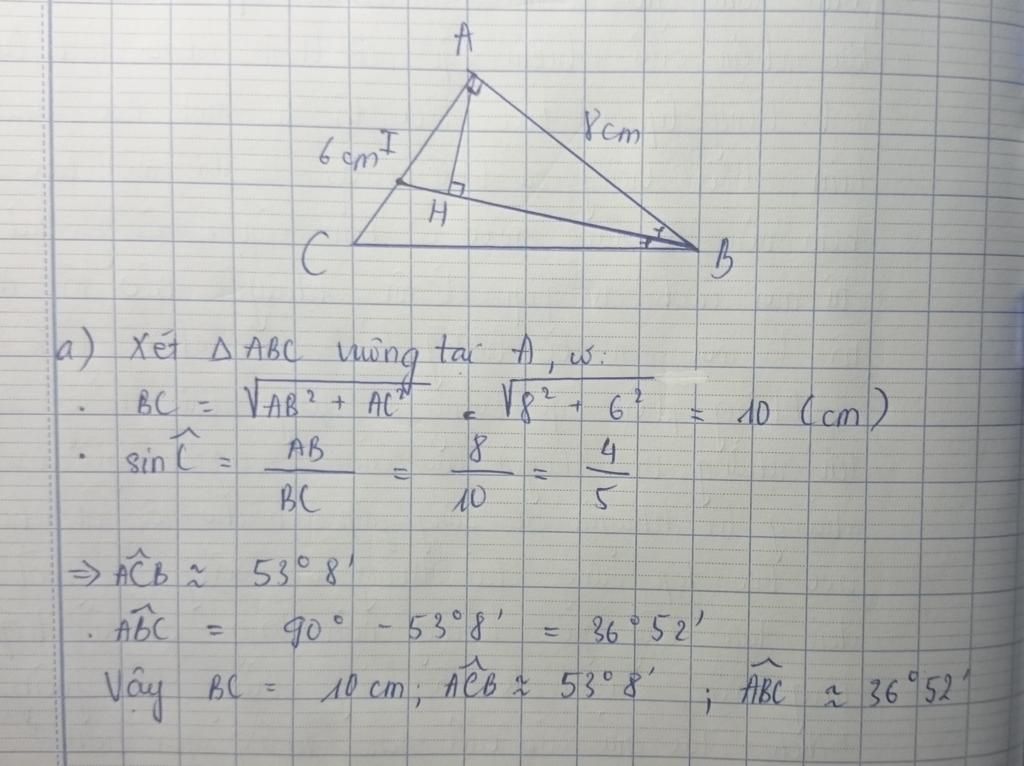 A
6 cm I
8cm
H
C
B
a) Xét Δ ABC vuông tại A, có:
. BC = √AB² + AC² = √8² + 6² = 10 (cm)
. sin Ĉ = AB/BC = 8/10 = 4/5
⇒ AĈB ≈ 53° 8'
. AB̂C = 90° - 53° 8' = 36° 52'
Vậy BC = 10 cm; AĈB ≈ 53° 8' ; AB̂C ≈ 36° 52'